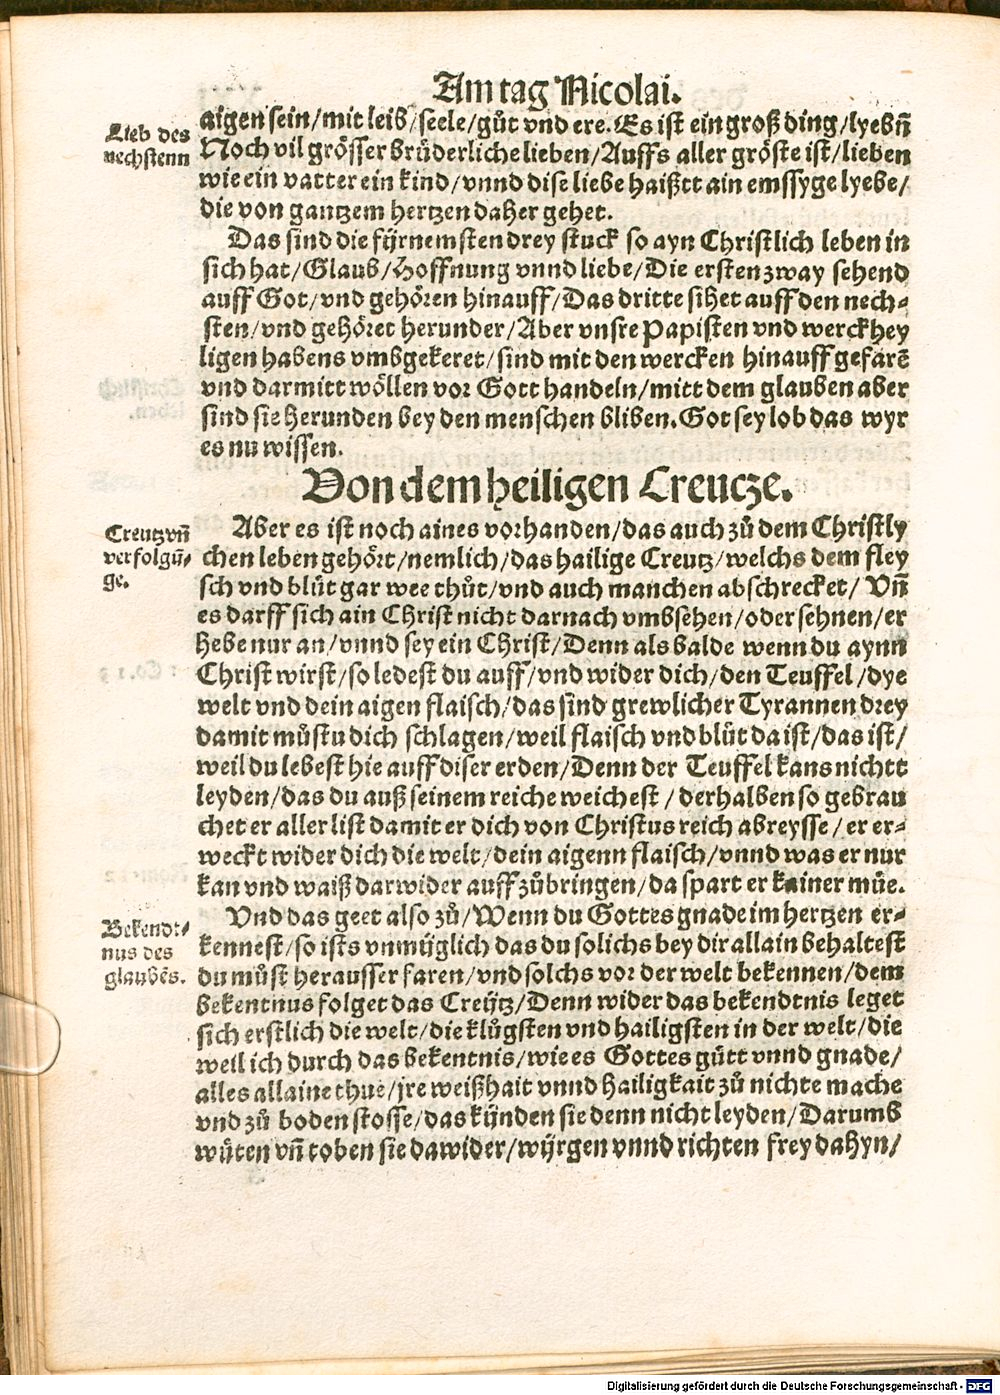 Am tag Nicolai.
Lieb des
nechstenn
aigen sein/mit leib/seele/gůt vnd ere. Es ist ein groß ding/lyebñ
Noch vil grösser brüderliche lieben/Auffs aller gröste ist/lieben
wie ein vatter ein kind/vnnd dise liebe haißtt ain emssyge lyebe/
die von gantzem hertzen daher gehet.
Das sind die fijrnemsten drey stuck so ayn Christlich leben in
sich hat/Glaub/Hoffnung vnnd liebe/Die ersten zway sehend
auff Got/vnd gehören hinauff/Das dritte sihet auff den nech-
sten/vnd gehöret herunder/Aber vnsre Papisten vnd werckhey
ligen habens vmbgekeret/sind mit den wercken hinauff gefarē
vnd darmitt wöllen vor Gott handeln/mitt dem glauben aber
sind sie herunden bey den menschen bliben. Got sey lob das wyr
es nu wissen.
Von dem heiligen Creucze.
Creutz vñ
verfolgū-
ge.
Aber es ist noch aines vorhanden/das auch zů dem Christly
chen leben gehört/nemlich/das hailige Creutz/welchs dem fley
sch vnd blůt gar wee thůt/vnd auch manchen abschrecket/ Vñ
es darff sich ain Christ nicht darnach vmbsehen/oder sehnen/er
hebe nur an/vnnd sey ein Christ/Denn als balde wenn du aynn
Christ wirst/so ledest du auff/vnd wider dich/den Teuffel/dye
welt vnd dein aigen flaisch/das sind grewlicher Tyrannen drey
damit můstu dich schlagen/weil flaisch vnd blůt da ist/das ist/
weil du lebest hie auff diser erden/Denn der Teuffel kans nichtt
leyden/das du auß seinem reiche weichest/derhalben so gebrau
chet er aller list damit er dich von Christus reich abreysse/er er-
weckt wider dich die welt/dein aigenn flaisch/vnnd was er nur
kan vnd waiß darwider auff zůbringen/da spart er kainer müe.
Bekendt-
nus des
glaubēs.
Vnd das geet also zů/Wenn du Gottes gnade im hertzen er-
kennest/so ists vnmüglich das du solichs bey dir allain behaltest
du můst herausser faren/vnd solchs vor der welt bekennen/dem
bekentnus folget das Creütz/Denn wider das bekendtnis leget
sich erstlich die welt/die klůgsten vnd hailigsten in der welt/die
weil ich durch das bekentnis/wie es Gottes gütt vnnd gnade/
alles allaine thue/jre weißhait vnnd hailigkait zů nichte mache
vnd zů boden stosse/das kijnden sie denn nicht leyden/Darumb
wüten vñ toben sie dawider/wijrgen vnnd richten frey dahyn/
Digitalisierung gefördert durch die Deutsche Forschungsgemeinschaft - DFG